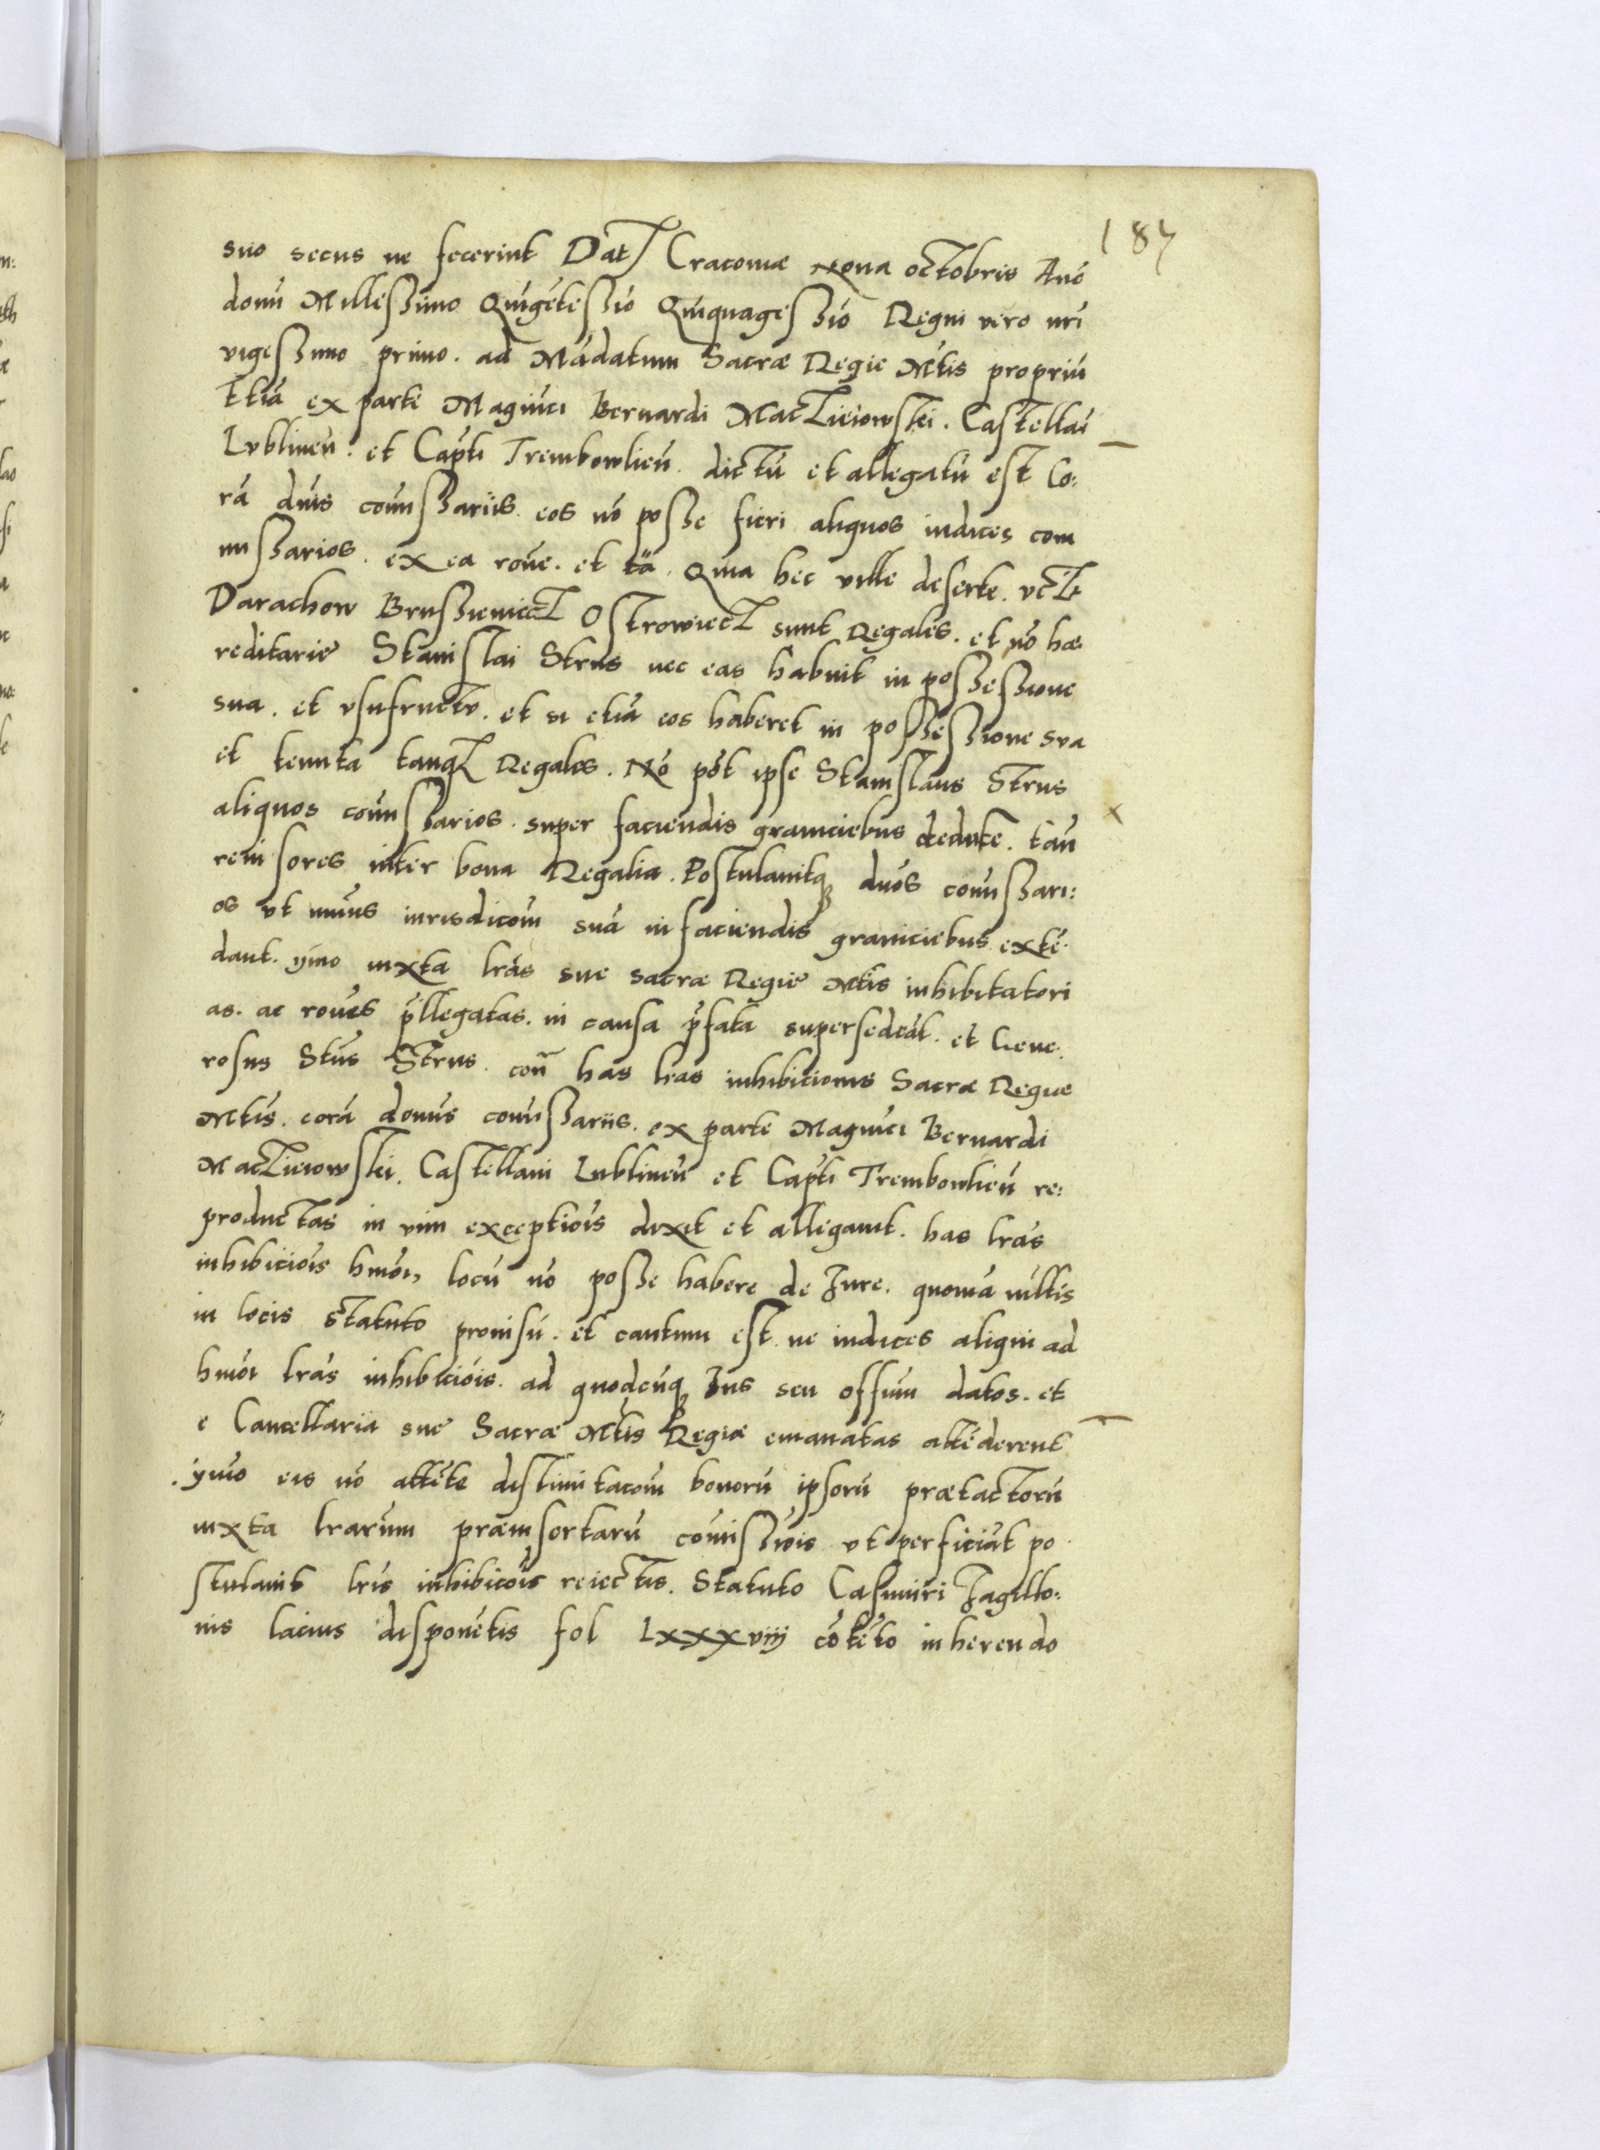 187
suo secus ne fecerint Dat Cracoviæ Nona octobris Año
domi Millessimo Quigẽtessio Quiquagessio Regni vero nri
vigessimo primo. ad Mãdatum Sacræ Regie Mtis propriũ
Etiã ex parte Magnici Bernardi Macziieiowskii. Castellãi
Lublineñ. et Capti Trembowlieñ. dictũ et allegatũ est Co:
rã dnis comissariis. eos nõ posse fieri aliquos iudices com
missarios. ex ea roñe. et tã. Quia hec ville deserte. vct
Darachow Brussieniecz Ostrowiecz sunt Regales. et nõ hæ
reditarie Stanislai Strus nec eas habuit in possessione
sua. et vsufructu. et si etiã eos haberet in possessione sua
et tenuta tanq Regales. Nõ pót ipse Stanislaus Strus
aliquos comissarios. super faciendis graniciebus deducte. tan
revisores inter bona Regalia. Postulavitq duos comissari:
os ut minus iurisdicom suã in faciendis graniciebus extẽ.
dant. ymo iuxta lrãs sue sacræ Regie Mtis inhibitatori
as. ac roñes pllegatas. in causa pfata supersedeãt. et Gene.
rosus Stũs Strus. coñ has lras inhibicionis Sacræ Regiæ
Mtis. corã domis comissariis. ex parte Magnici Bernardi
Macziieiowskii. Castellani Lublineñ et Capti Trembowlieñ re:
productas in vim exceptiõis dixit et allegavit. has lrãs
inhibiciõis hmõi, locũ nõ posse habere de Jure. quoniã multis
in locis statuto provisũ. et cautum est. ne iudices aliqui ad
hmõi lrãs inhibiciõis. ad quodcũq Jus seu offium datos. et
e Cancellaria sue Sacræ Mtis Regiæ emanatas attẽderent
. ymo eis nõ attẽte distimitacom bonorũ ipsorũ prætactorũ
iuxta lrarum præinsertarũ comissiõis vt perficiãt po
stulavit lris inhibicõis reiectis. Statuto Casimiri Jagello:
nis lacius disponẽtis fol Lxxxviij cõtẽto inherendo